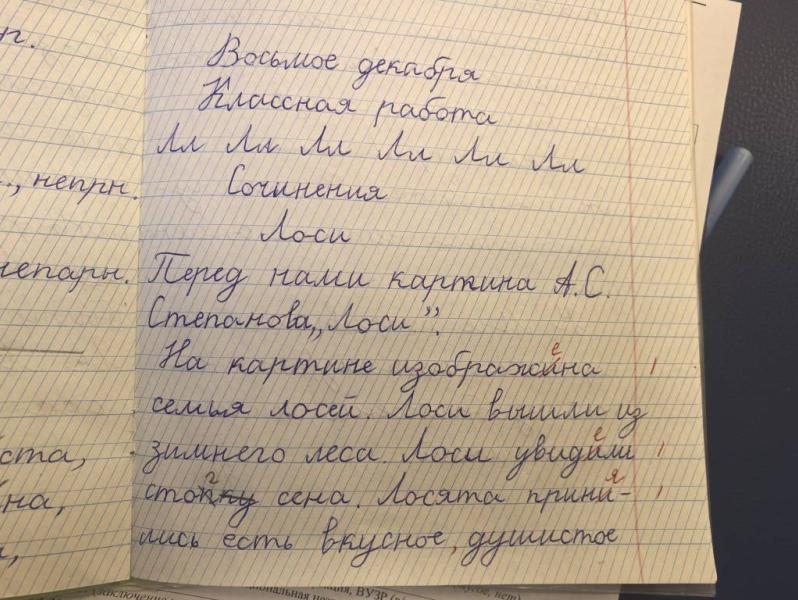 Восьмое декабря
Классная работа
Лл Лл Лл Лл Лл Лл
, непрн.
Сочинения
Лоси
непарн.
Перед нами картина А.С.
Степанова „Лоси”.
На картине изображина
е
семья лосей. Лоси вышли из
ста,
зимнего леса. Лоси увидили
е
на,
сена. Лосята прини-
я
лись есть вкусное, душистое